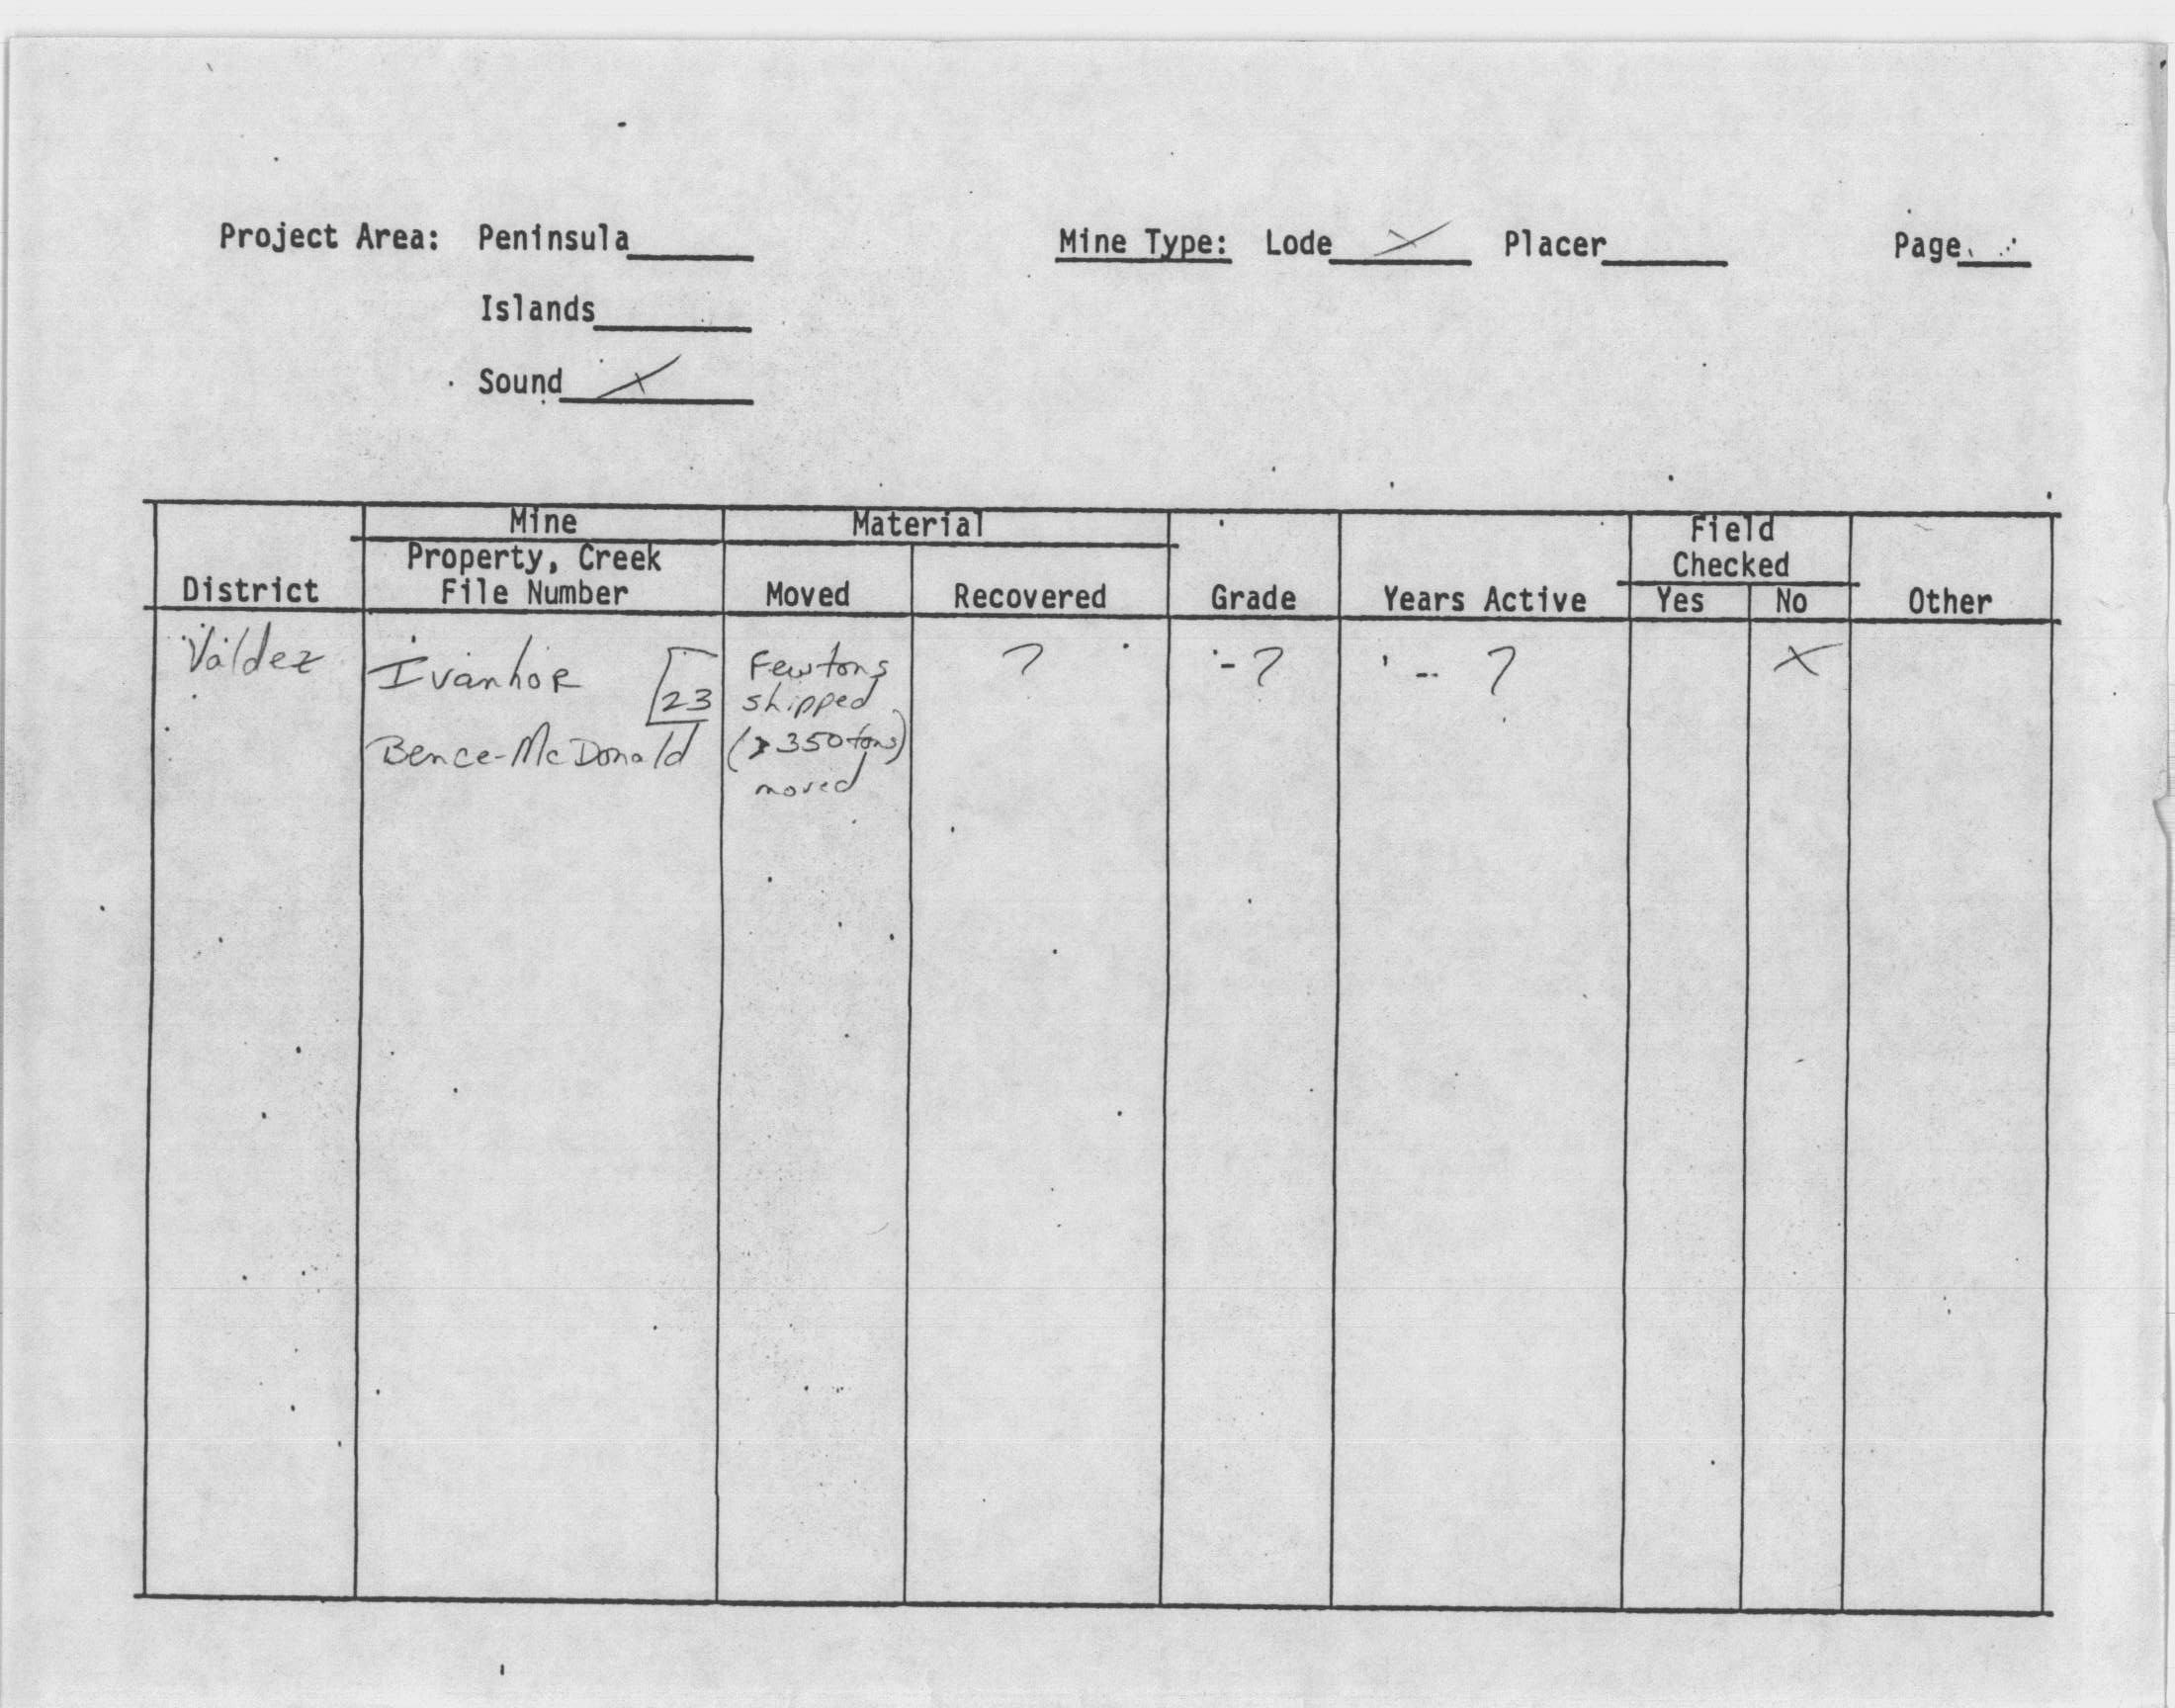 Project Area: Peninsula
Mine Type: Lode X Placer
Page
Islands
Sound X
Mine
Material
Field
Property, Creek
Checked
District
File Number
Moved
Recovered
Grade
Years Active
Yes
No
Other
Valdez
Ivanhoe
23
Few tons
?
- ?
-- ?
X
shipped
Bence-McDonald
(>350 tons)
moved